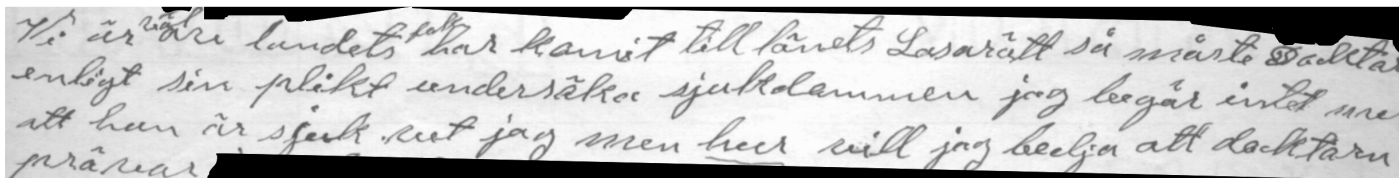 Vi är väl åri landets folk har komit till länets Lasarätt så måste Docktar
enligt sin plikt undersäka sjukdammen jag begär intet me
att hun är sjuk vet jag men hur vill jag bedja att docktarn
prävar